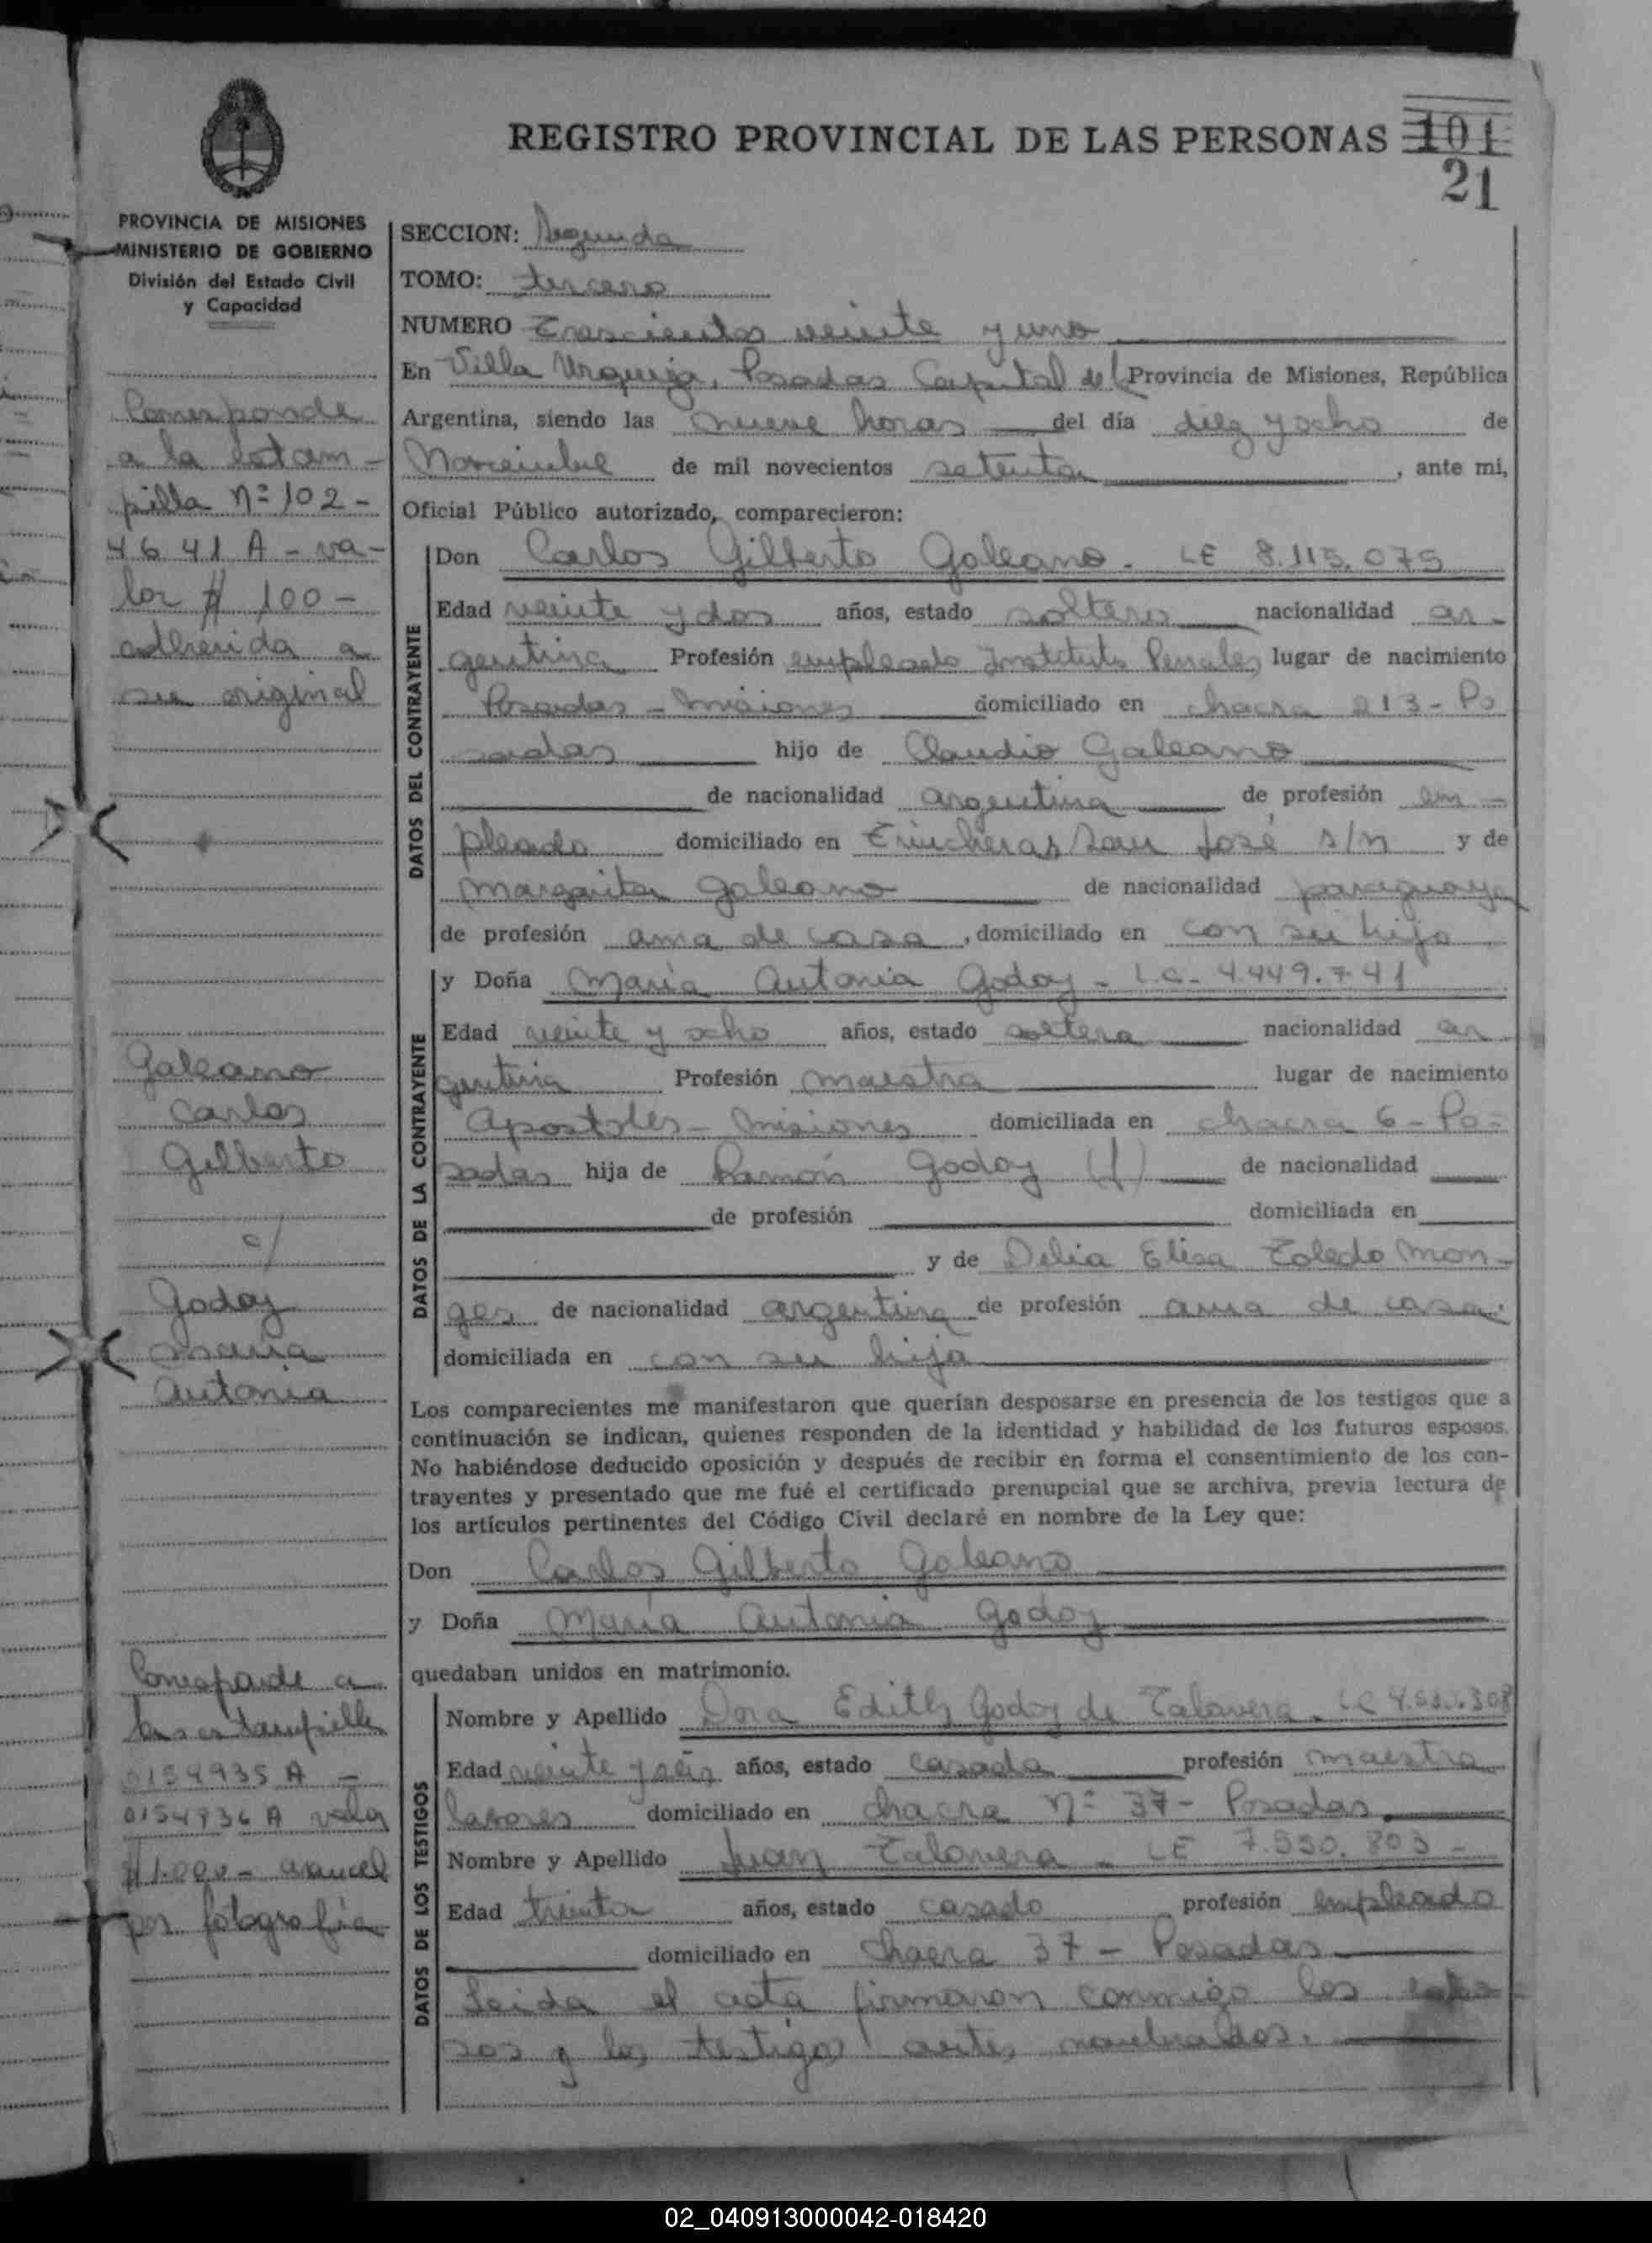 REGISTRO PROVINCIAL DE LAS PERSONAS 101
21
PROVINCIA DE MISIONES
MINISTERIO DE GOBIERNO
División del Estado Civil
y Capacidad
Corresponde
a la estam-
pilla nº 102-
4641 A - va-
lor $ 100-
adherida a
su original
Galeano
Carlos
Gilberto
c/
Godoy
Maria
Antonia
Corresponde a
las estampillas
0154935 A -
0154936 A valor
$ 1.000- arancel
por fotografía
SECCION: Segunda
TOMO: tercero
NUMERO Trescientos veinte y uno
En Villa Urquiza, Posadas Capital de la Provincia de Misiones, República
Argentina, siendo las nueve horas del día diez y ocho de
Noviembre de mil novecientos setenta, ante mi,
Oficial Público autorizado, comparecieron:
DATOS DEL CONTRAYENTE
Don Carlos Gilberto Galeano. LE 8.115.075
Edad veinte y dos años, estado soltero nacionalidad ar-
gentina Profesión empleado Instituto Penales lugar de nacimiento
Posadas - Misiones domiciliado en chacra 213 - Po
sadas hijo de Claudio Galeano
de nacionalidad argentina de profesión em-
pleado domiciliado en Trincheras San José s/n y de
Margarita Galeano de nacionalidad paraguaya
de profesión ama de casa, domiciliado en con su hijo
DATOS DE LA CONTRAYENTE
y Doña María Antonia Godoy - L.C. 4.449.741
Edad veinte y ocho años, estado soltera nacionalidad ar
gentina Profesión maestra lugar de nacimiento
Apostoles - Misiones domiciliada en chacra 6 - Po-
sadas hija de Ramón Godoy (f) de nacionalidad
de profesión domiciliada en
y de Delia Elisa Toledo Mon-
ges de nacionalidad argentina de profesión ama de casa.
domiciliada en con su hija
Los comparecientes me manifestaron que querían desposarse en presencia de los testigos que a
continuación se indican, quienes responden de la identidad y habilidad de los futuros esposos.
No habiéndose deducido oposición y después de recibir en forma el consentimiento de los con-
trayentes y presentado que me fué el certificado prenupcial que se archiva, previa lectura de
los artículos pertinentes del Código Civil declaré en nombre de la Ley que:
Don Carlos Gilberto Galeano
y Doña María Antonia Godoy
quedaban unidos en matrimonio.
DATOS DE LOS TESTIGOS
Nombre y Apellido Edith Godoy de Talavera. LC
Edad veinte y seis años, estado casada profesión maestra
labores domiciliado en chacra nº 37 - Posadas
Nombre y Apellido Juan Talavera - LE 7.550.803 -
Edad treinta años, estado casado profesión empleado
domiciliado en chacra 37 - Posadas
Leida el acta firmaron conmigo los espo
sos y los testigos antes nombrados.
02_040913000042-018420